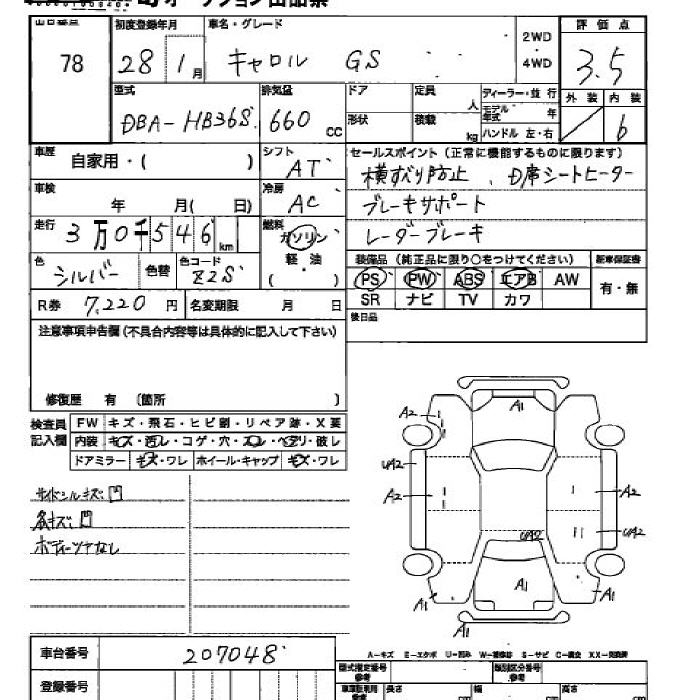 出品番号
78
初度登録年月
28 1月
車名・グレード
キャロル GS
2WD
・
4WD
評価点
3.5
外装 内装
6
型式
DBA-HB36S
排気量
660 CC
ドア
形状
定員
人
積載
kg
ディーラー・並行
モデル年式 年
ハンドル 左・右
車歴
自家用・( )
シフト
AT
セールスポイント(正常に機能するものに限ります)
横すべり防止、D席シートヒーター
ブレーキサポート
レーダーブレーキ
車検
年 月( 日)
冷房
AC
走行
3万0千546km
燃料
ガソリン
軽・油
( ・ )
色
シルバー
色替
色コード
Z2S
装備品(純正品に限り○をつけてください)
新車保証書
PS PW ABS エアB AW
有・無
SR ナビ TV カワ
R券 7,220 円
名変期限 月 日
後日品
注意事項申告欄(不具合内容等は具体的に記入して下さい)
修復歴 有 〔箇所 〕
検査員記入欄
FW キズ・飛石・ヒビ割・リペア跡・X要
内装 キズ・汚レ・コゲ・穴・スレ・ヘタリ・破レ
ドアミラー キズ・ワレ ホイール・キャップ キズ・ワレ
サイドシルキズ凹
各キズ凹
A1
A2
UA2
A2
A2
UA2
UA2
A1
A1
A1
A1
A-キズ E-エクボ U-凹み W-補修跡 S-サビ C-腐食 XX-交換済
車台番号
207048
登録番号
型式指定番号
参考
類別区分番号
参考
長さ
幅
高さ